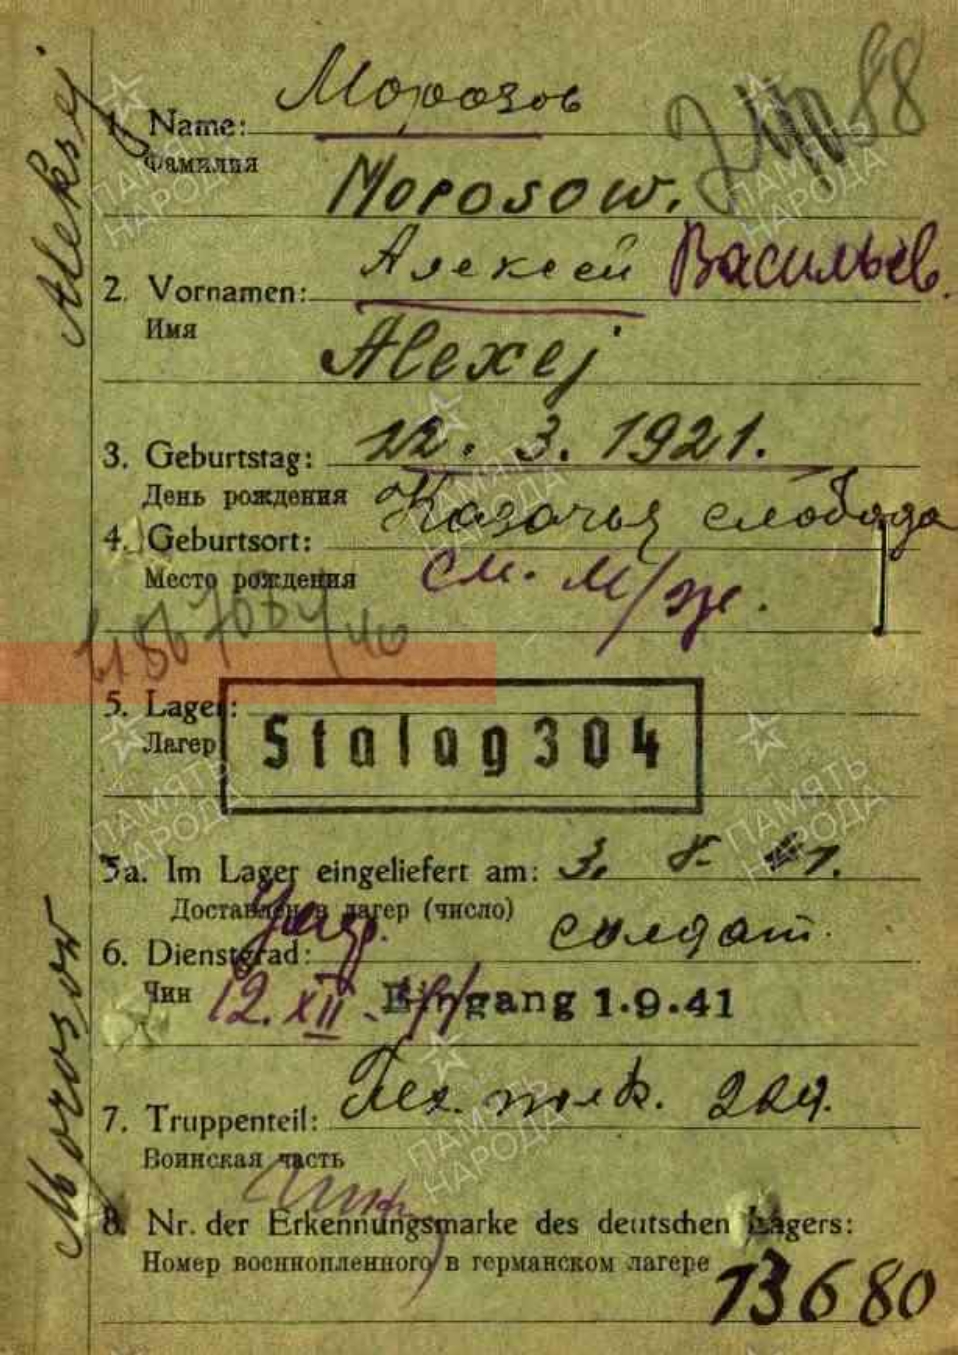 Морозов
1. Name:
Фамилия
Morosow.
Алексей Васильев.
2. Vornamen:
Имя
Alexej
3. Geburtstag: 12. 3. 1921.
День рождения
Казачья слобода
4. Geburtsort:
Место рождения
см. м/ж.
5. Lager: Stalag 304
Лагерь
5a. Im Lager eingeliefert am: 3. 8. 41.
Доставлен в лагерь (число)
6. Dienstgrad: солдат.
Чин
12. XII. 41
Eingang 1.9.41
7. Truppenteil: Пех. полк.
Воинская часть
8. Nr. der Erkennungsmarke des deutschen Lagers:
Номер военнопленного в германском лагере
13680
Aleksej
Morosow
ПАМЯТЬ НАРОДА
ПАМЯТЬ НАРОДА
ПАМЯТЬ НАРОДА
ПАМЯТЬ НАРОДА
ПАМЯТЬ НАРОДА
ПАМЯТЬ НАРОДА